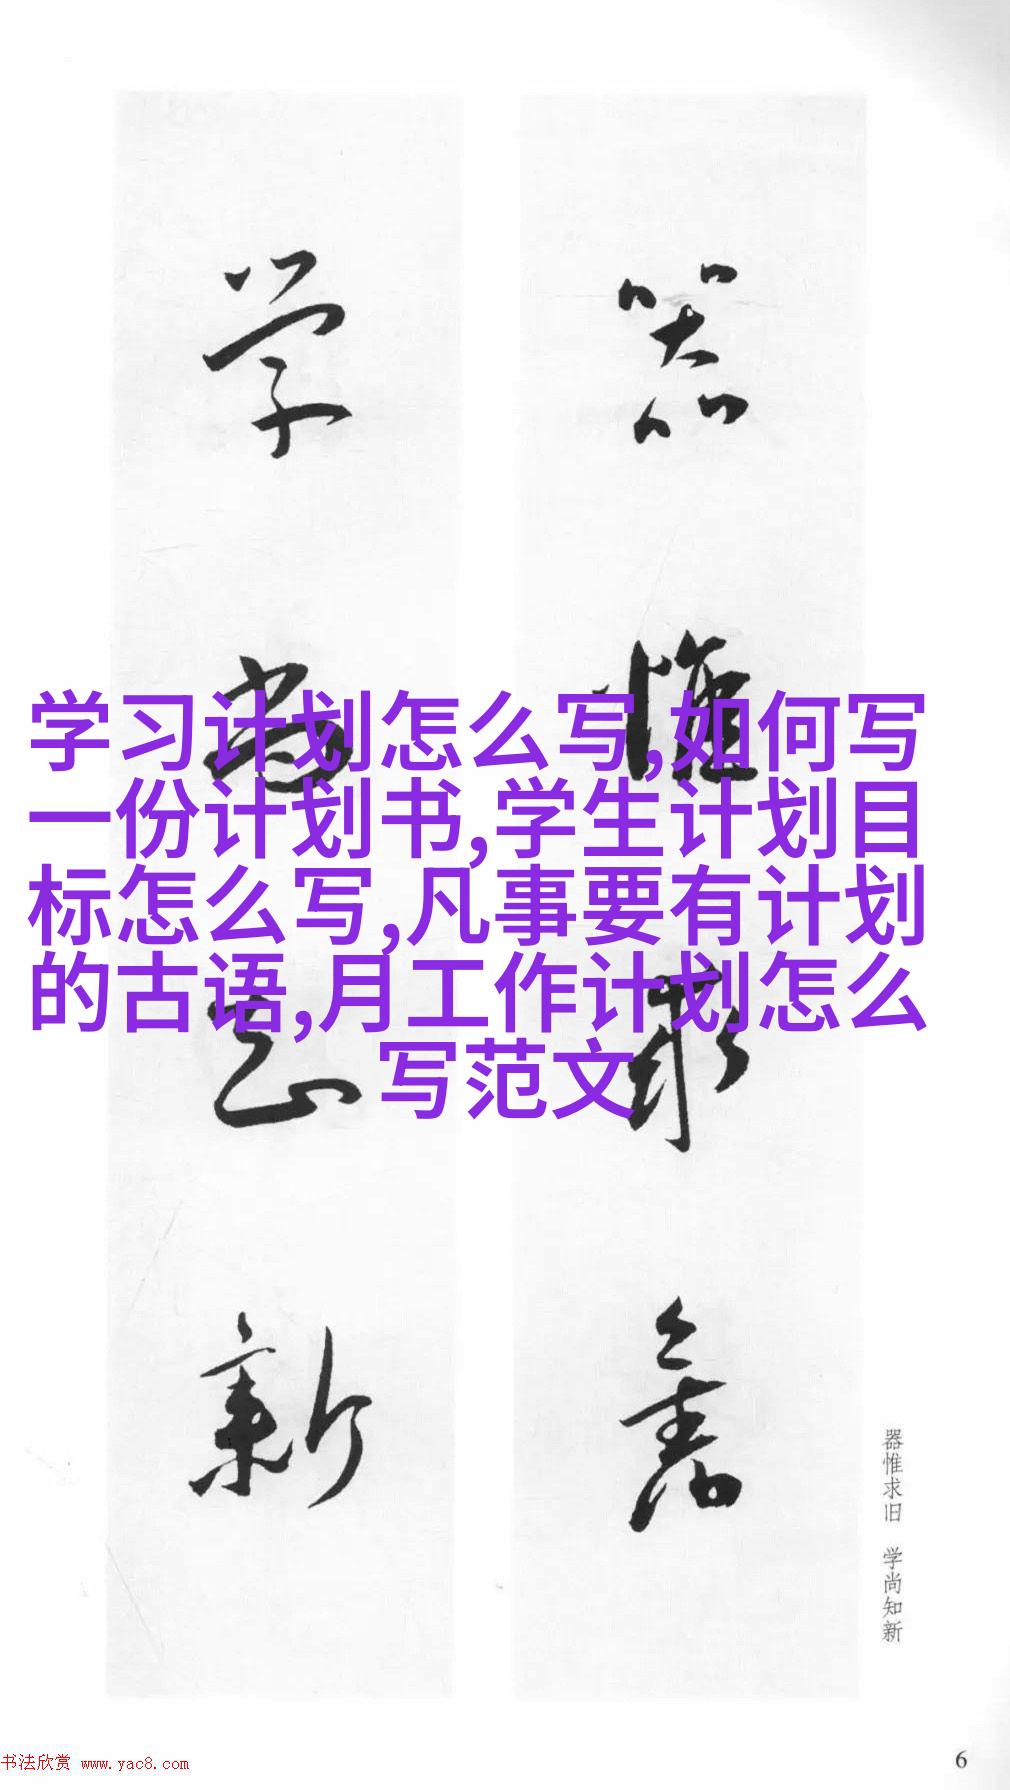 学习计划怎么写,如何写
一份计划书,学生计划目
标怎么写,凡事要有计划
的古语,月工作计划怎么
写范文
器惟求舊
学尚知新
器惟求旧 学尚知新
书法欣赏 www.yac8.com
6